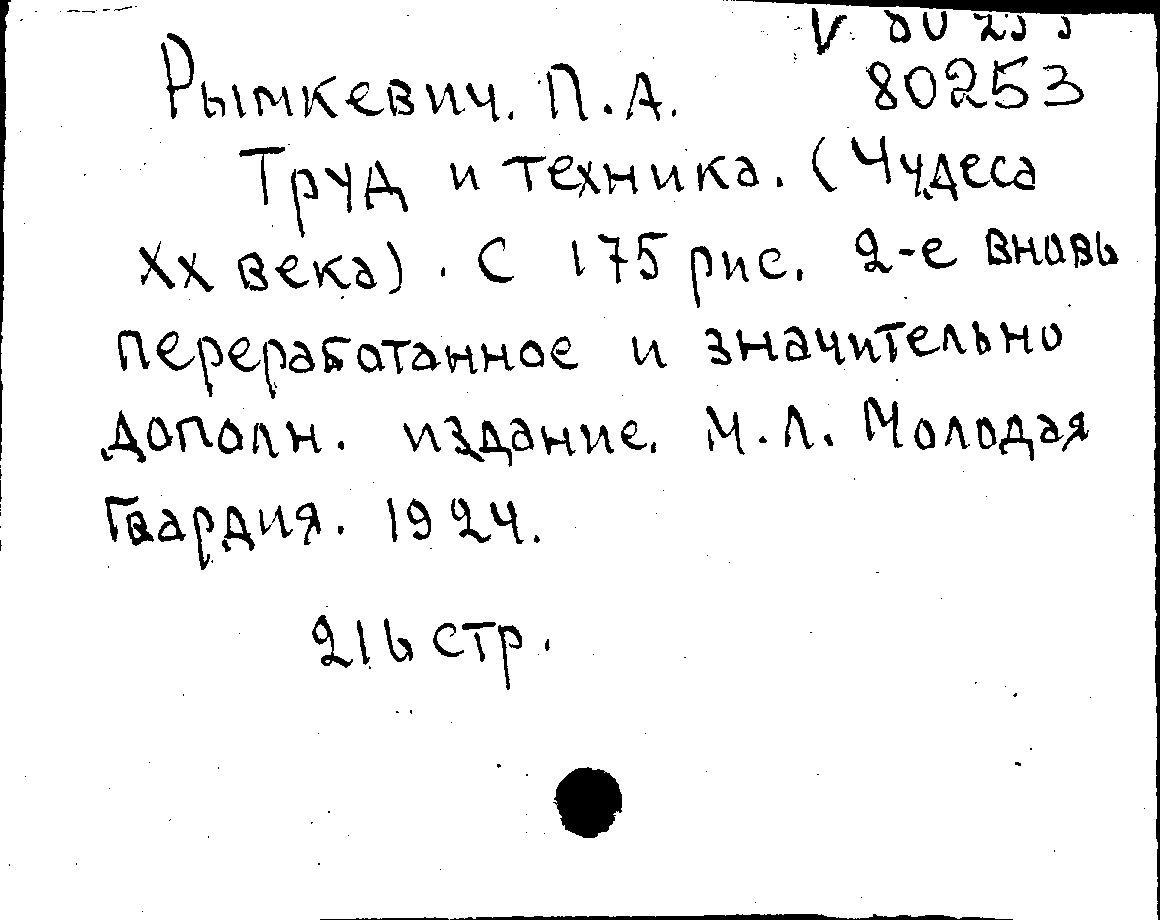 V 80253
Рымкевич. П.А. 80253
Труд и техника. (Чудеса
XX века). С 175 рис. 2-е вновь
переработанное и значительно
дополн. издание. М.Л. Молодая
Гвардия. 1924.
216 стр.